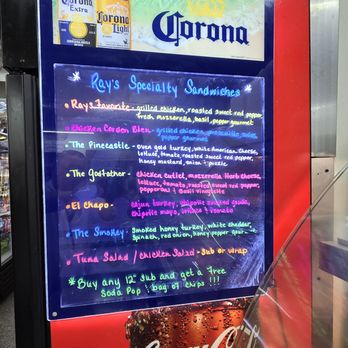 Corona
Extra
Corona
Light
Corona
Ray's Specialty Sandwiches
• Rays Favorite - grilled chicken, roasted sweet red pepper,
fresh mozzerella, basil, pepper gourmet
• Chicken Corden Bleu - grilled chicken,
pepper gourmet
• The Pinecastle - oven gold turkey, white American cheese,
lettuce, tomato, roasted sweet red pepper,
honey mustard, onion
• The Godfather - chicken cutlet, mozzerella
lettuce, tomato, roasted sweet red pepper,
pepperoni & basil vinaigrette
• El Chapo - cajun turkey, chipotle gouda,
chipotle mayo, onion & tomato
• The Smokey - Smoked honey turkey, white cheddar,
Spinach, red onion, honey pepper
• Tuna Salad / chicken Salad - Sub or wrap
* Buy any 12" sub and get a Free
Soda Pop & bag of chips !!!